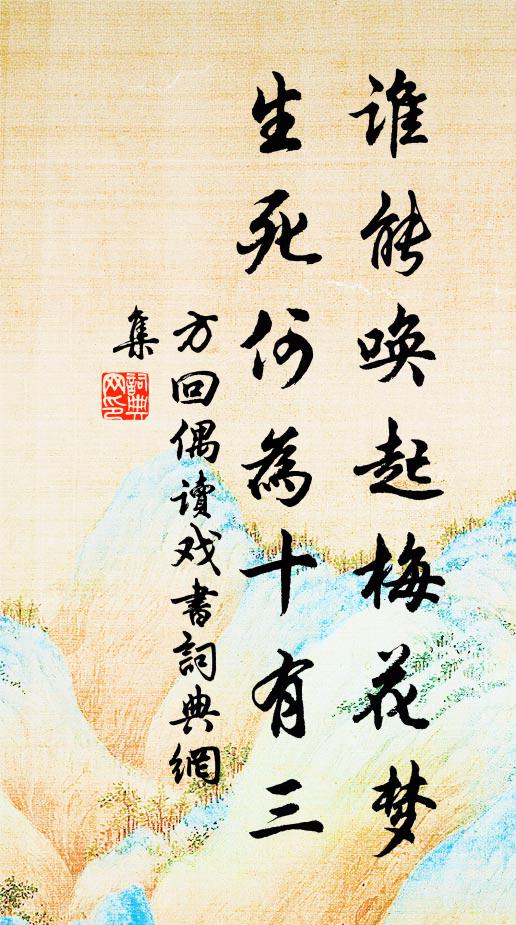 谁能唤起梅花梦
生死何為十有三
方回偶读戏書詞典網
集
詞典
网印